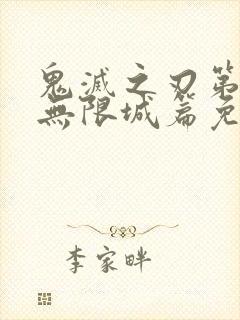 鬼滅之刃第
無限城篇免
李家畔